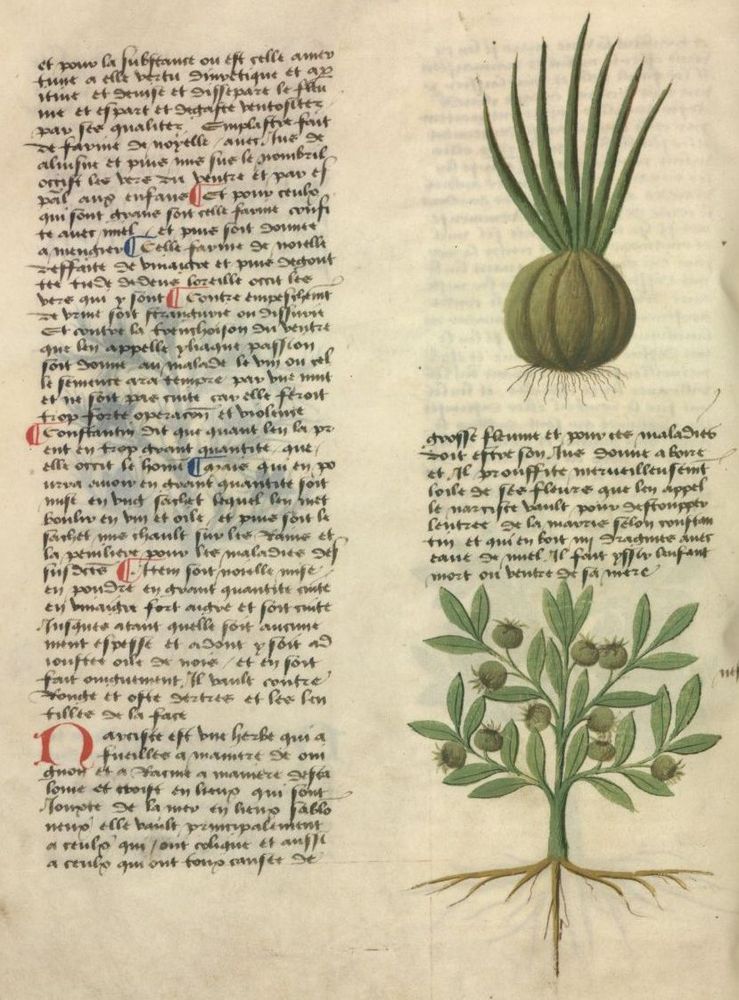 et pour la substance ou est celle amer
tume a elle vertu diuretique et ap̄
itiue et deuise et dissepare le fleu
me et espart et degaste ventositez
par ses qualitez. Emplastre fait
de farine de noyelle auec Jus de
aluisne et puis mis sus le nombril
occist les vers du ventre et par es
p̄al aus enfans ¶ Et pour ceulx
qui sont grans soit celle farine confi
te auec miel et puis soit donnee
a mengier ¶ Celle farine de noielle
reffaite de vinaigre et puis degout
tee tiede dedens loreille occit les
vers qui y sont ¶ Contre empeschemt̄
de vrine soit strangurie ou dissurie
Et contre la trenchoison du ventre
que len appelle yliaque passion
soit donne au malade le vin ou cel
le semence ara tempre par vne nuit
et ne soit pas cuite car elle feroit
trop forte operacōn et violente
¶ Constantin dit que quant len la pr
ent en trop grant quantite que
elle occit le home ¶ Mais qui en po
urra auoir en grant quantite soit
mise en vng sachet lequel len met
boulir en vin et oile et puis soit le
sachet mis chault sur les Rains et
la peniliere pour les maladies des
susdctēs ¶ Item soit noielle mise
en pouldre en grant quantite cuite
en vinaigre fort aigre et soit cuite
Jusques atant quelle soit aucune
ment espesse et adont y soit ad
iouftee oile de nois et en soit
fait oingnement Il vault contre
Rongne et oste dertres et les len
tilles de la face
Narciste est vne herbe qui a
fueilles a maniere de oui
gnon et a Racine a maniere desca
loine et croist en lieux qui sont
Jouxte de la mer en lieux sablo
neux elle vault principalement
a ceulx qui ont colique et aussi
a ceulx qui ont toux causee de
grosse fleume et pour ces maladies
doit estre son Jus donne a boire
et Il prouffite merueilleusemt̄
loile de ses fleurs que len appel
le narciste vault pour destoupper
lentree de la marris selon constan
tin et qui en boit iiii dragmes auec
eaue de miel Il fait yssir lenfant
mort ou ventre de sa mere